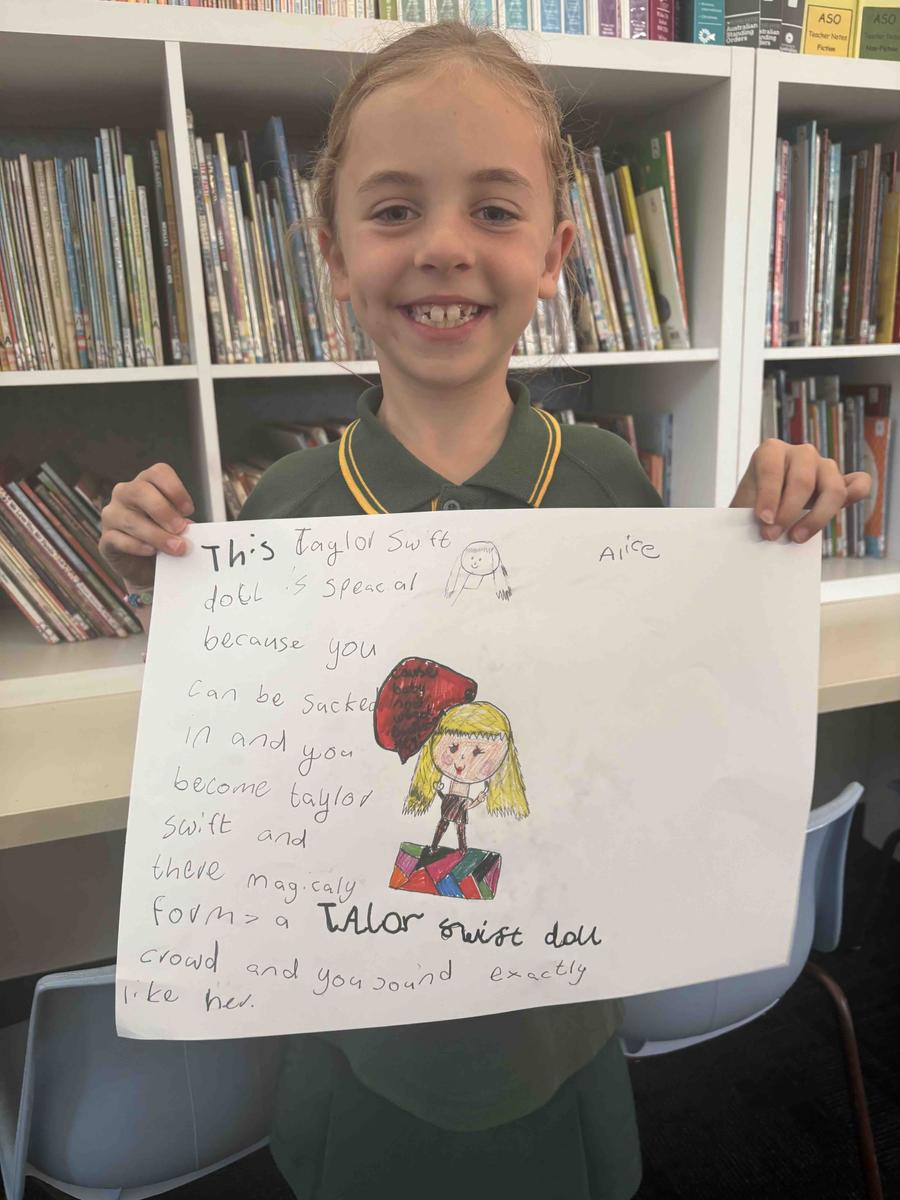 ASO
Teacher Notes
Fiction
ASO
Teacher Notes
Non-Fiction
Australian
Standing
Orders
This Taylor Swift
doll is speacial
Alice
because you
can be sucked
in and you
become taylor
swift and
there magicaly
forms a TAlor swist doll
crowd and you sound exactly
like her.
cause
baby